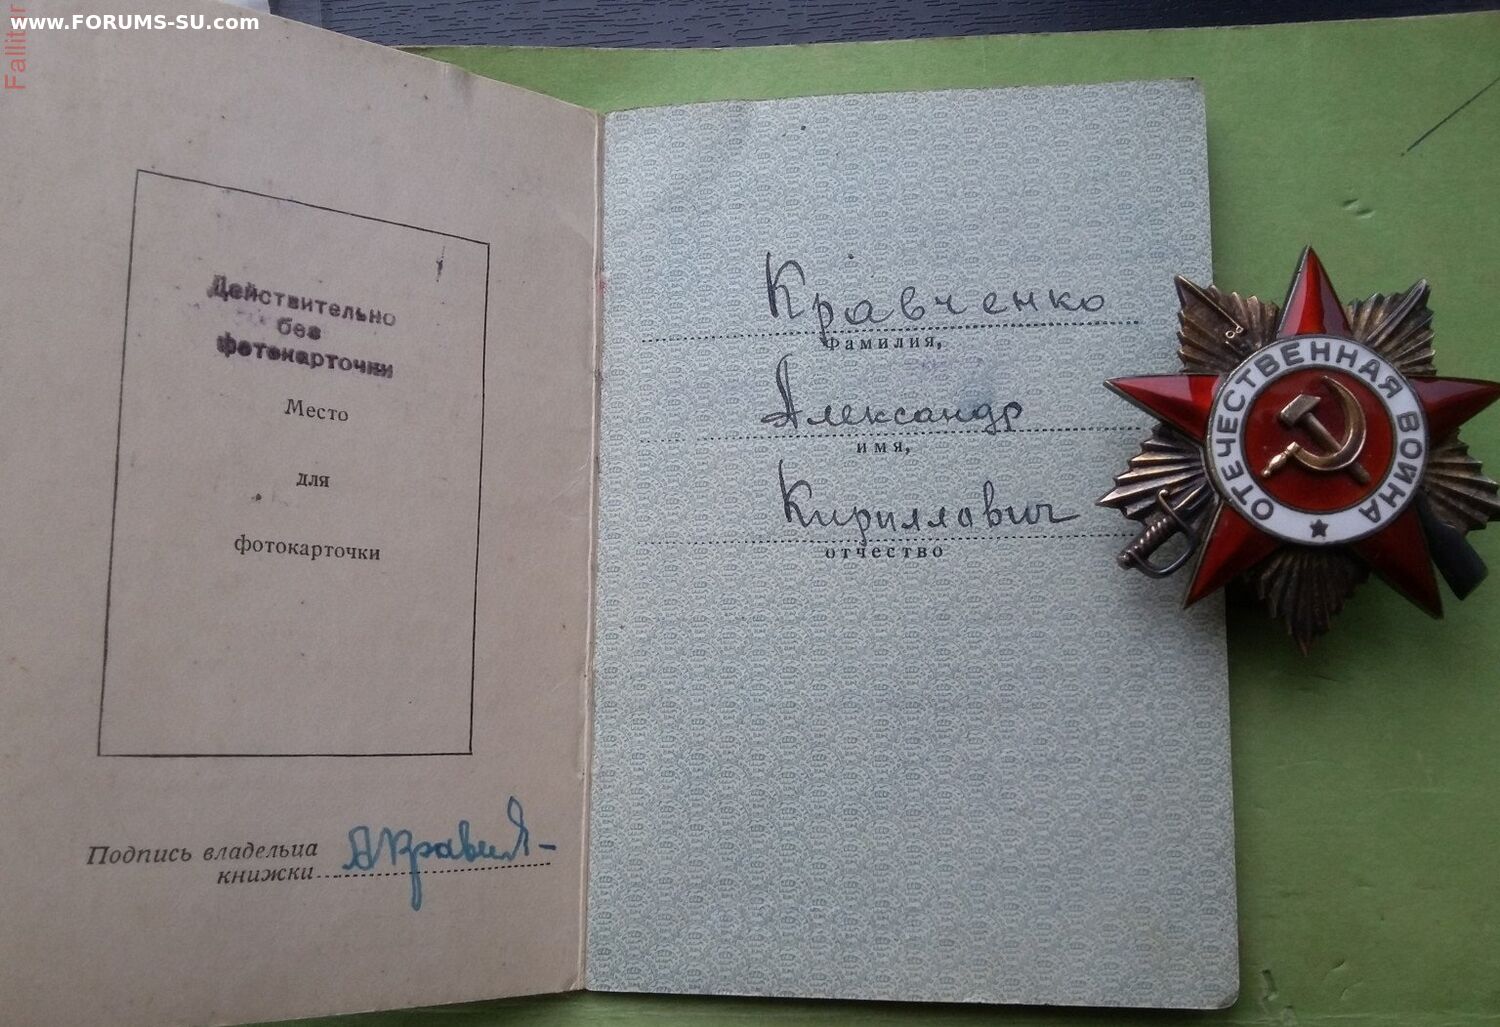 www.FORUMS-SU.com
Действительно
без
фотокарточки
Место
для
фотокарточки
Подпись владельца
книжки
Кравченко
фамилия,
Александр
имя,
Кириллович
отчество
ОТЕЧЕСТВЕННАЯ ВОЙНА